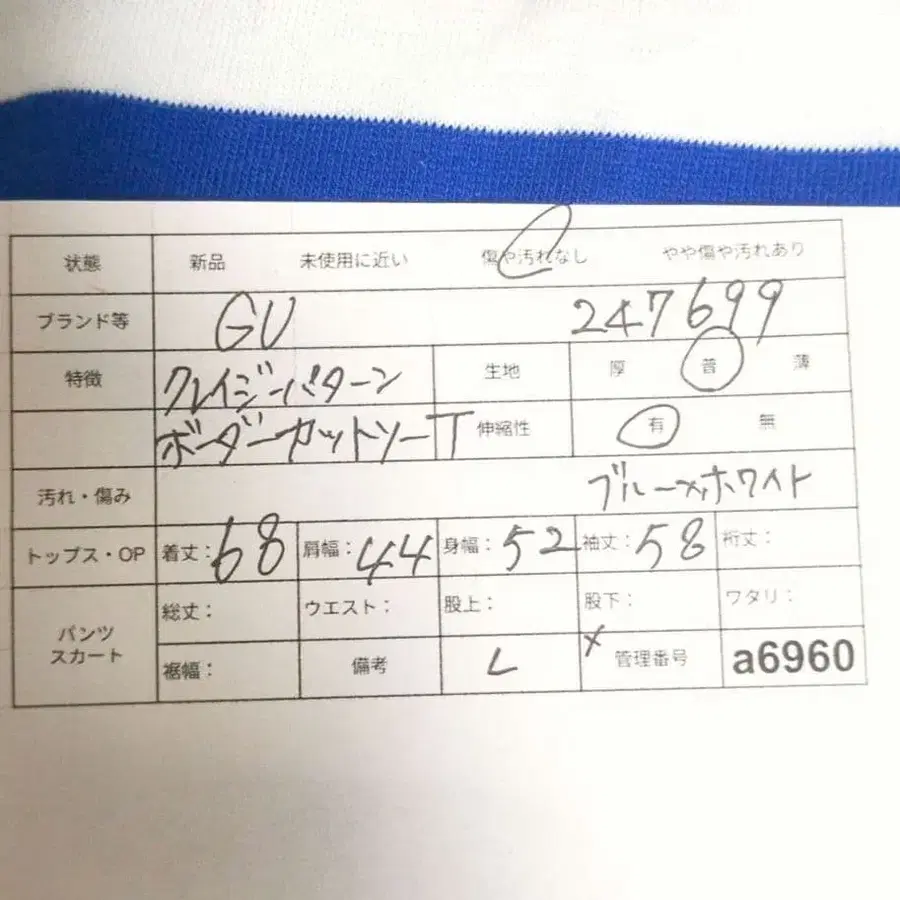 状態 新品 未使用に近い 傷や汚れなし やや傷や汚れあり
ブランド等 GU 247699
特徴 クレイジーパターン 生地 厚 普 薄
ボーダーカットソーT 伸縮性 有 無
汚れ・傷み ブルー×ホワイト
トップス・OP 着丈：68 肩幅：44 身幅：52 袖丈：58 裄丈：
パンツ スカート 総丈： ウエスト： 股上： 股下： ワタリ：
裾幅： 備考 L × 管理番号 a6960